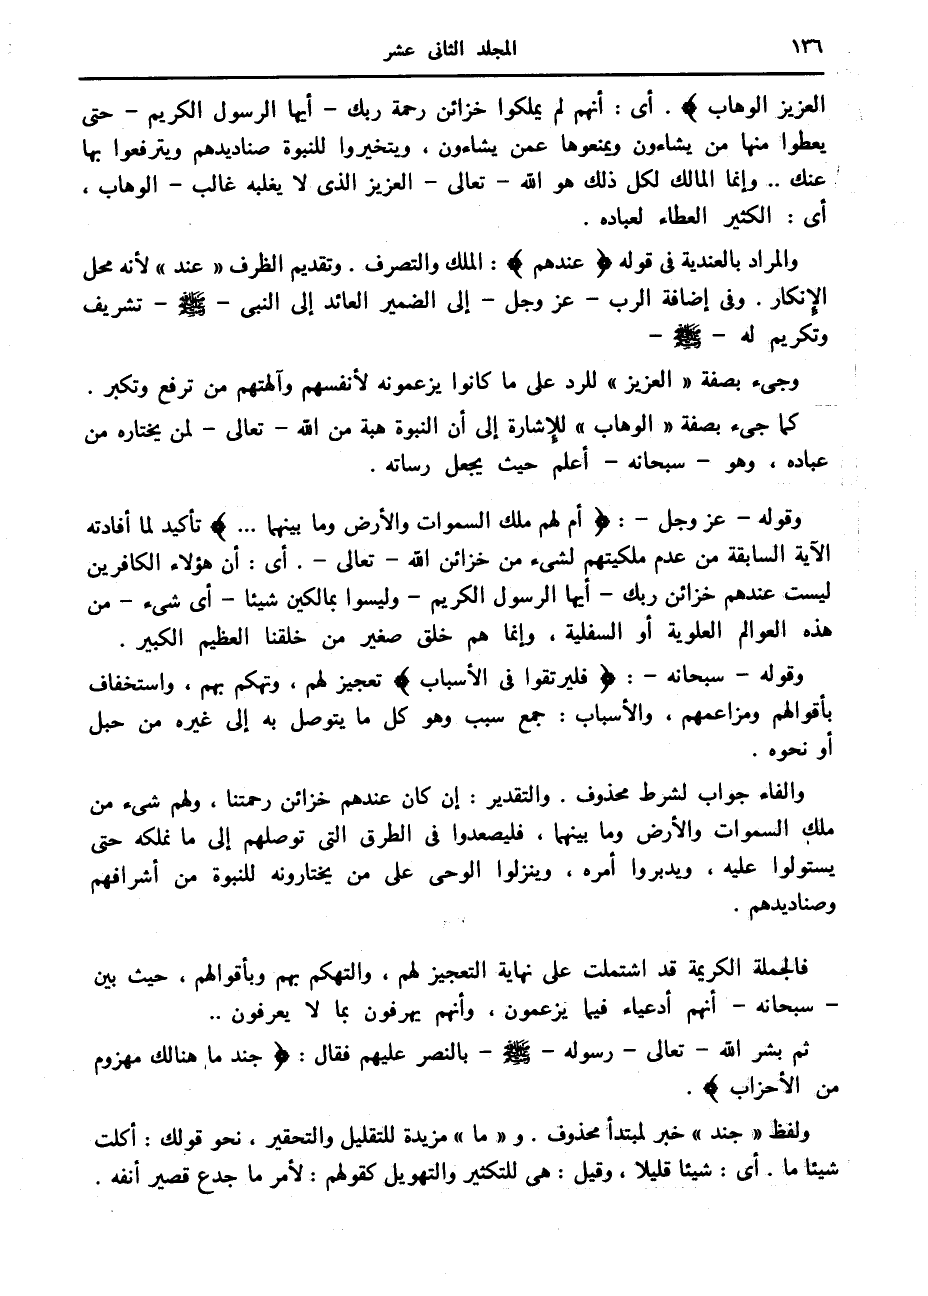 ١٣٦
المجلد الثانى عشر
العزيز الوهاب ﴾ . أى : أنهم لم يملكوا خزائن رحمة ربك – أيها الرسول الكريم – حتى
يعطوا منها من يشاءون ويمنعوها عمن يشاءون ، ويتخيروا للنبوة صناديدهم ويترفعوا بها
عنك .. وإنما المالك لكل ذلك هو الله – تعالى – العزيز الذى لا يغلبه غالب – الوهاب ،
أى : الكثير العطاء لعباده .
والمراد بالعندية فى قوله ﴿ عندهم ﴾ : الملك والتصرف . وتقديم الظرف « عند » لأنه محل
الإنكار . وفى إضافة الرب – عز وجل – إلى الضمير العائد إلى النبى – ﷺ – تشريف
وتكريم له – ﷺ –
وجىء بصفة « العزيز » للرد على ما كانوا يزعمونه لأنفسهم وآلهتهم من ترفع وتكبر .
كما جىء بصفة « الوهاب » للإشارة إلى أن النبوة هبة من الله – تعالى – لمن يختاره من
عباده ، وهو – سبحانه – أعلم حيث يجعل رساته .
وقوله – عز وجل – : ﴿ أم لهم ملك السموات والأرض وما بينهما ... ﴾ تأكيد لما أفادته
الآية السابقة من عدم ملكيتهم لشىء من خزائن الله – تعالى – . أى : أن هؤلاء الكافرين
ليست عندهم خزائن ربك – أيها الرسول الكريم – وليسوا بمالكين شيئا – أى شىء – من
هذه العوالم العلوية أو السفلية ، وإنما هم خلق صغير من خلقنا العظيم الكبير .
وقوله – سبحانه – : ﴿ فليرتقوا فى الأسباب ﴾ تعجيز لهم ، وتهكم بهم ، واستخفاف
بأقوالهم ومزاعمهم ، والأسباب : جمع سبب وهو كل ما يتوصل به إلى غيره من حبل
أو نحوه .
والفاء جواب لشرط محذوف . والتقدير : إن كان عندهم خزائن رحمتنا ، ولهم شىء من
ملك السموات والأرض وما بينهما ، فليصعدوا فى الطرق التى توصلهم إلى ما نملكه حتى
يستولوا عليه ، ويدبروا أمره ، وينزلوا الوحى على من يختارونه للنبوة من أشرافهم
وصناديدهم .
فالجملة الكريمة قد اشتملت على نهاية التعجيز لهم ، والتهكم بهم وبأقوالهم ، حيث بين
– سبحانه – أنهم أدعياء فيما يزعمون ، وأنهم يهرفون بما لا يعرفون ..
ثم بشر الله – تعالى – رسوله – ﷺ – بالنصر عليهم فقال : ﴿ جند ما هنالك مهزوم
من الأحزاب ﴾ .
ولفظ « جند » خبر لمبتدأ محذوف . و « ما » مزيدة للتقليل والتحقير ، نحو قولك : أكلت
شيئا ما . أى : شيئا قليلا ، وقيل : هى للتكثير والتهويل كقولهم : لأمر ما جدع قصير أنفه .